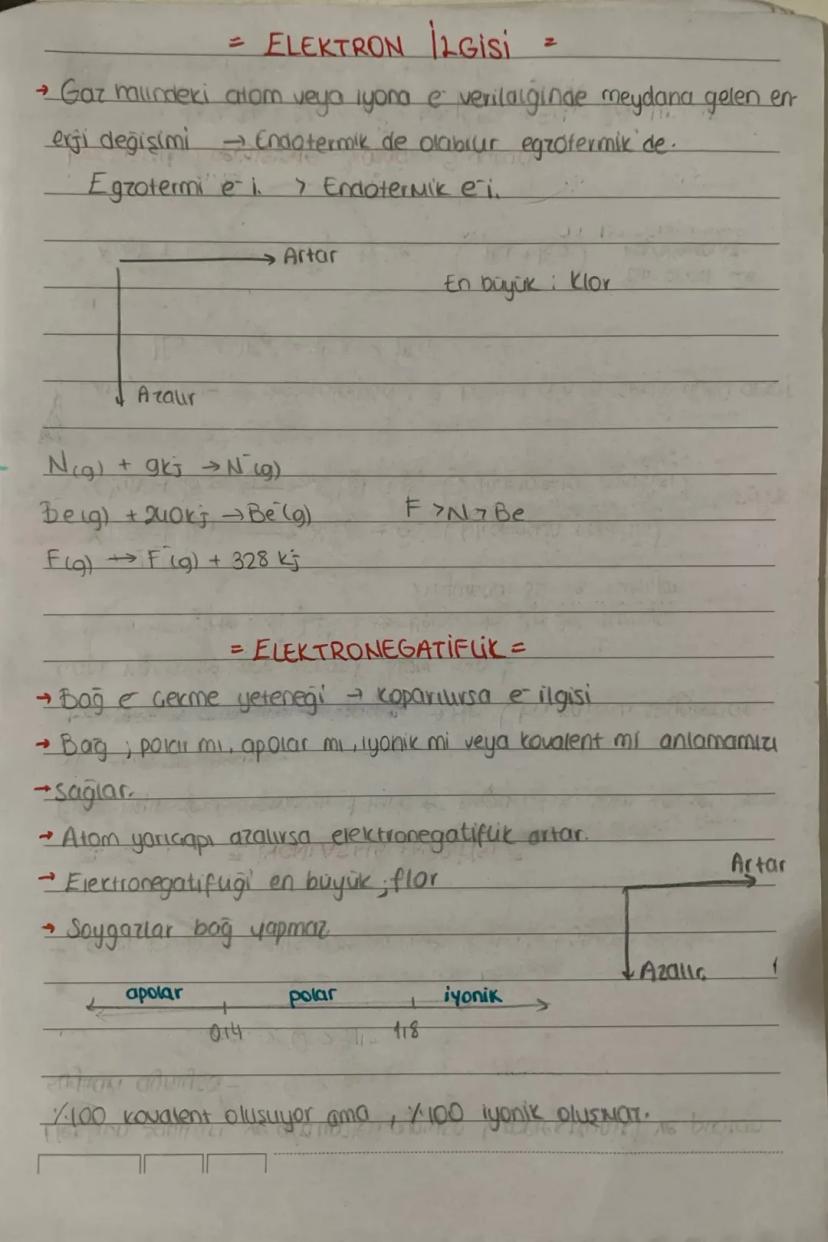 = ELEKTRON İLGİSİ =
→ Gaz halindeki atom veya iyona e⁻ verildiğinde meydana gelen en-
erji değişimi → Endotermik de olabilir egzotermik'de.
Egzotermi e⁻ i. > Endotermik e⁻i.
Artar
En büyük ; Klor
Azalır
N(g) + 9kj → N⁻(g)
Be(g) + 240kj → Be⁻(g) F > N > Be
F(g) → F⁻(g) + 328 kj
= ELEKTRONEGATİFLİK =
→ Bağ e⁻ çekme yeteneği → koparılırsa e⁻ ilgisi
→ Bağ ; polar mı, apolar mı, iyonik mi veya kovalent mi anlamamızı
→ sağlar.
→ Atom yarıçapı azalırsa elektronegatiflik artar.
→ Elektronegatifliği en büyük ; flor
Artar
→ Soygazlar bağ yapmaz
Azalır
apolar polar iyonik
0,4 1,8
%100 kovalent oluşuyor ama, %100 iyonik oluşmaz.